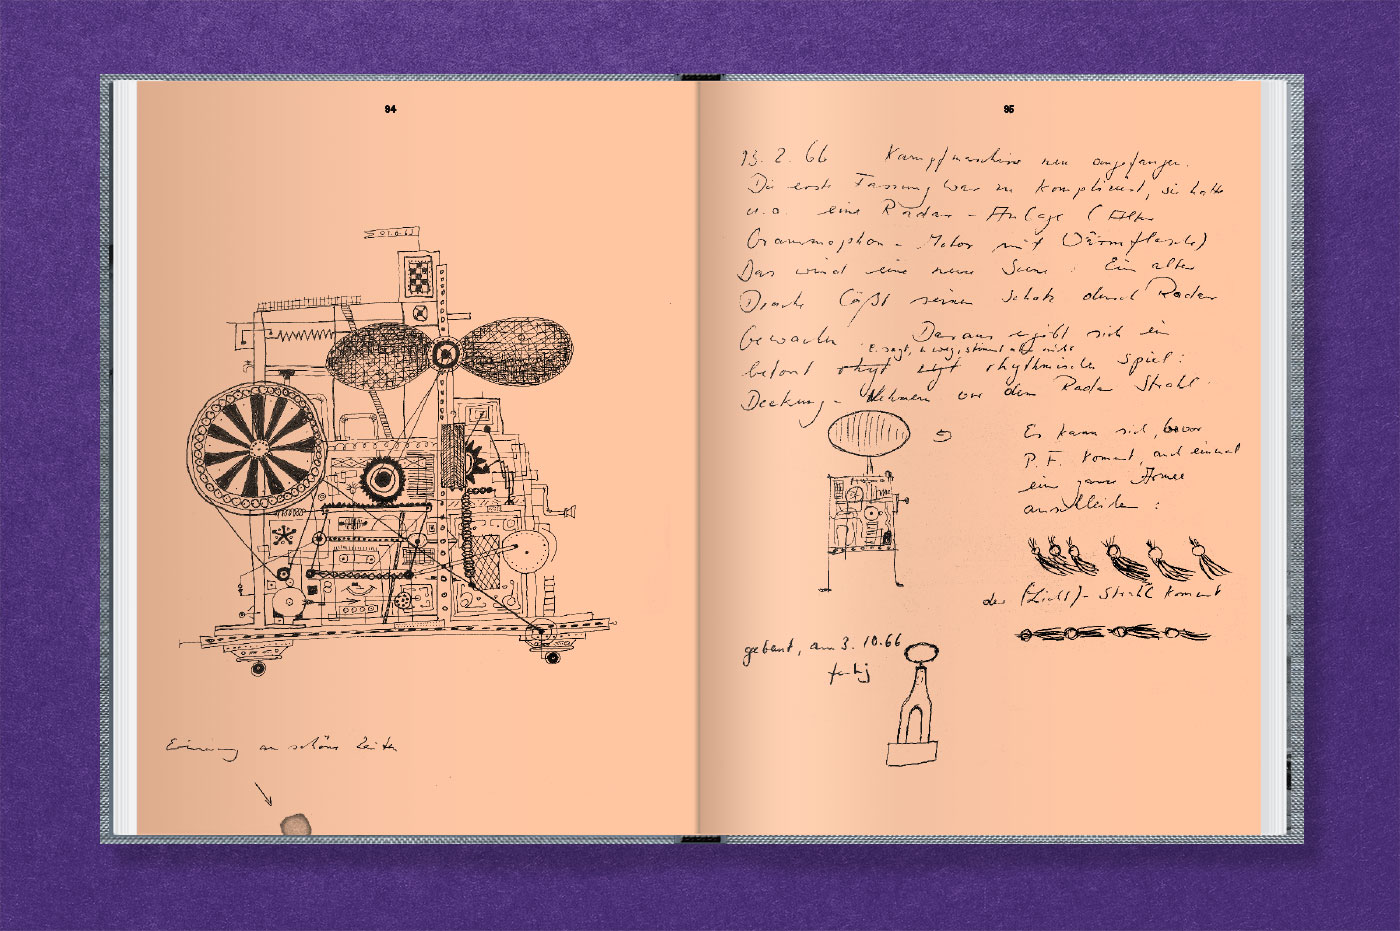 94
Erinnerung an schöne Zeiten
95
13. 2. 66 Kampfmaschine neu angefangen.
Die erste Fassung war zu kompliziert, sie hatte
u.a. eine Radar-Anlage (Alter
Grammophon-Motor mit Wärmflasche)
Das wird eine neue Szene: Ein alter
Drache läßt seinen Schatz durch Radar
bewachen Daraus ergibt sich ein
E. sagt, h weg, stimmt aber nicht
betont rhythmisches Spiel:
Deckung-Nehmen vor dem Radar Strahl.
Es kann sich, bevor
P. F. kommt, auch einmal
eine ganze Armee
anschleichen:
der (Licht)-Strahl kommt
gebaut, am 3. 10. 66
fertig